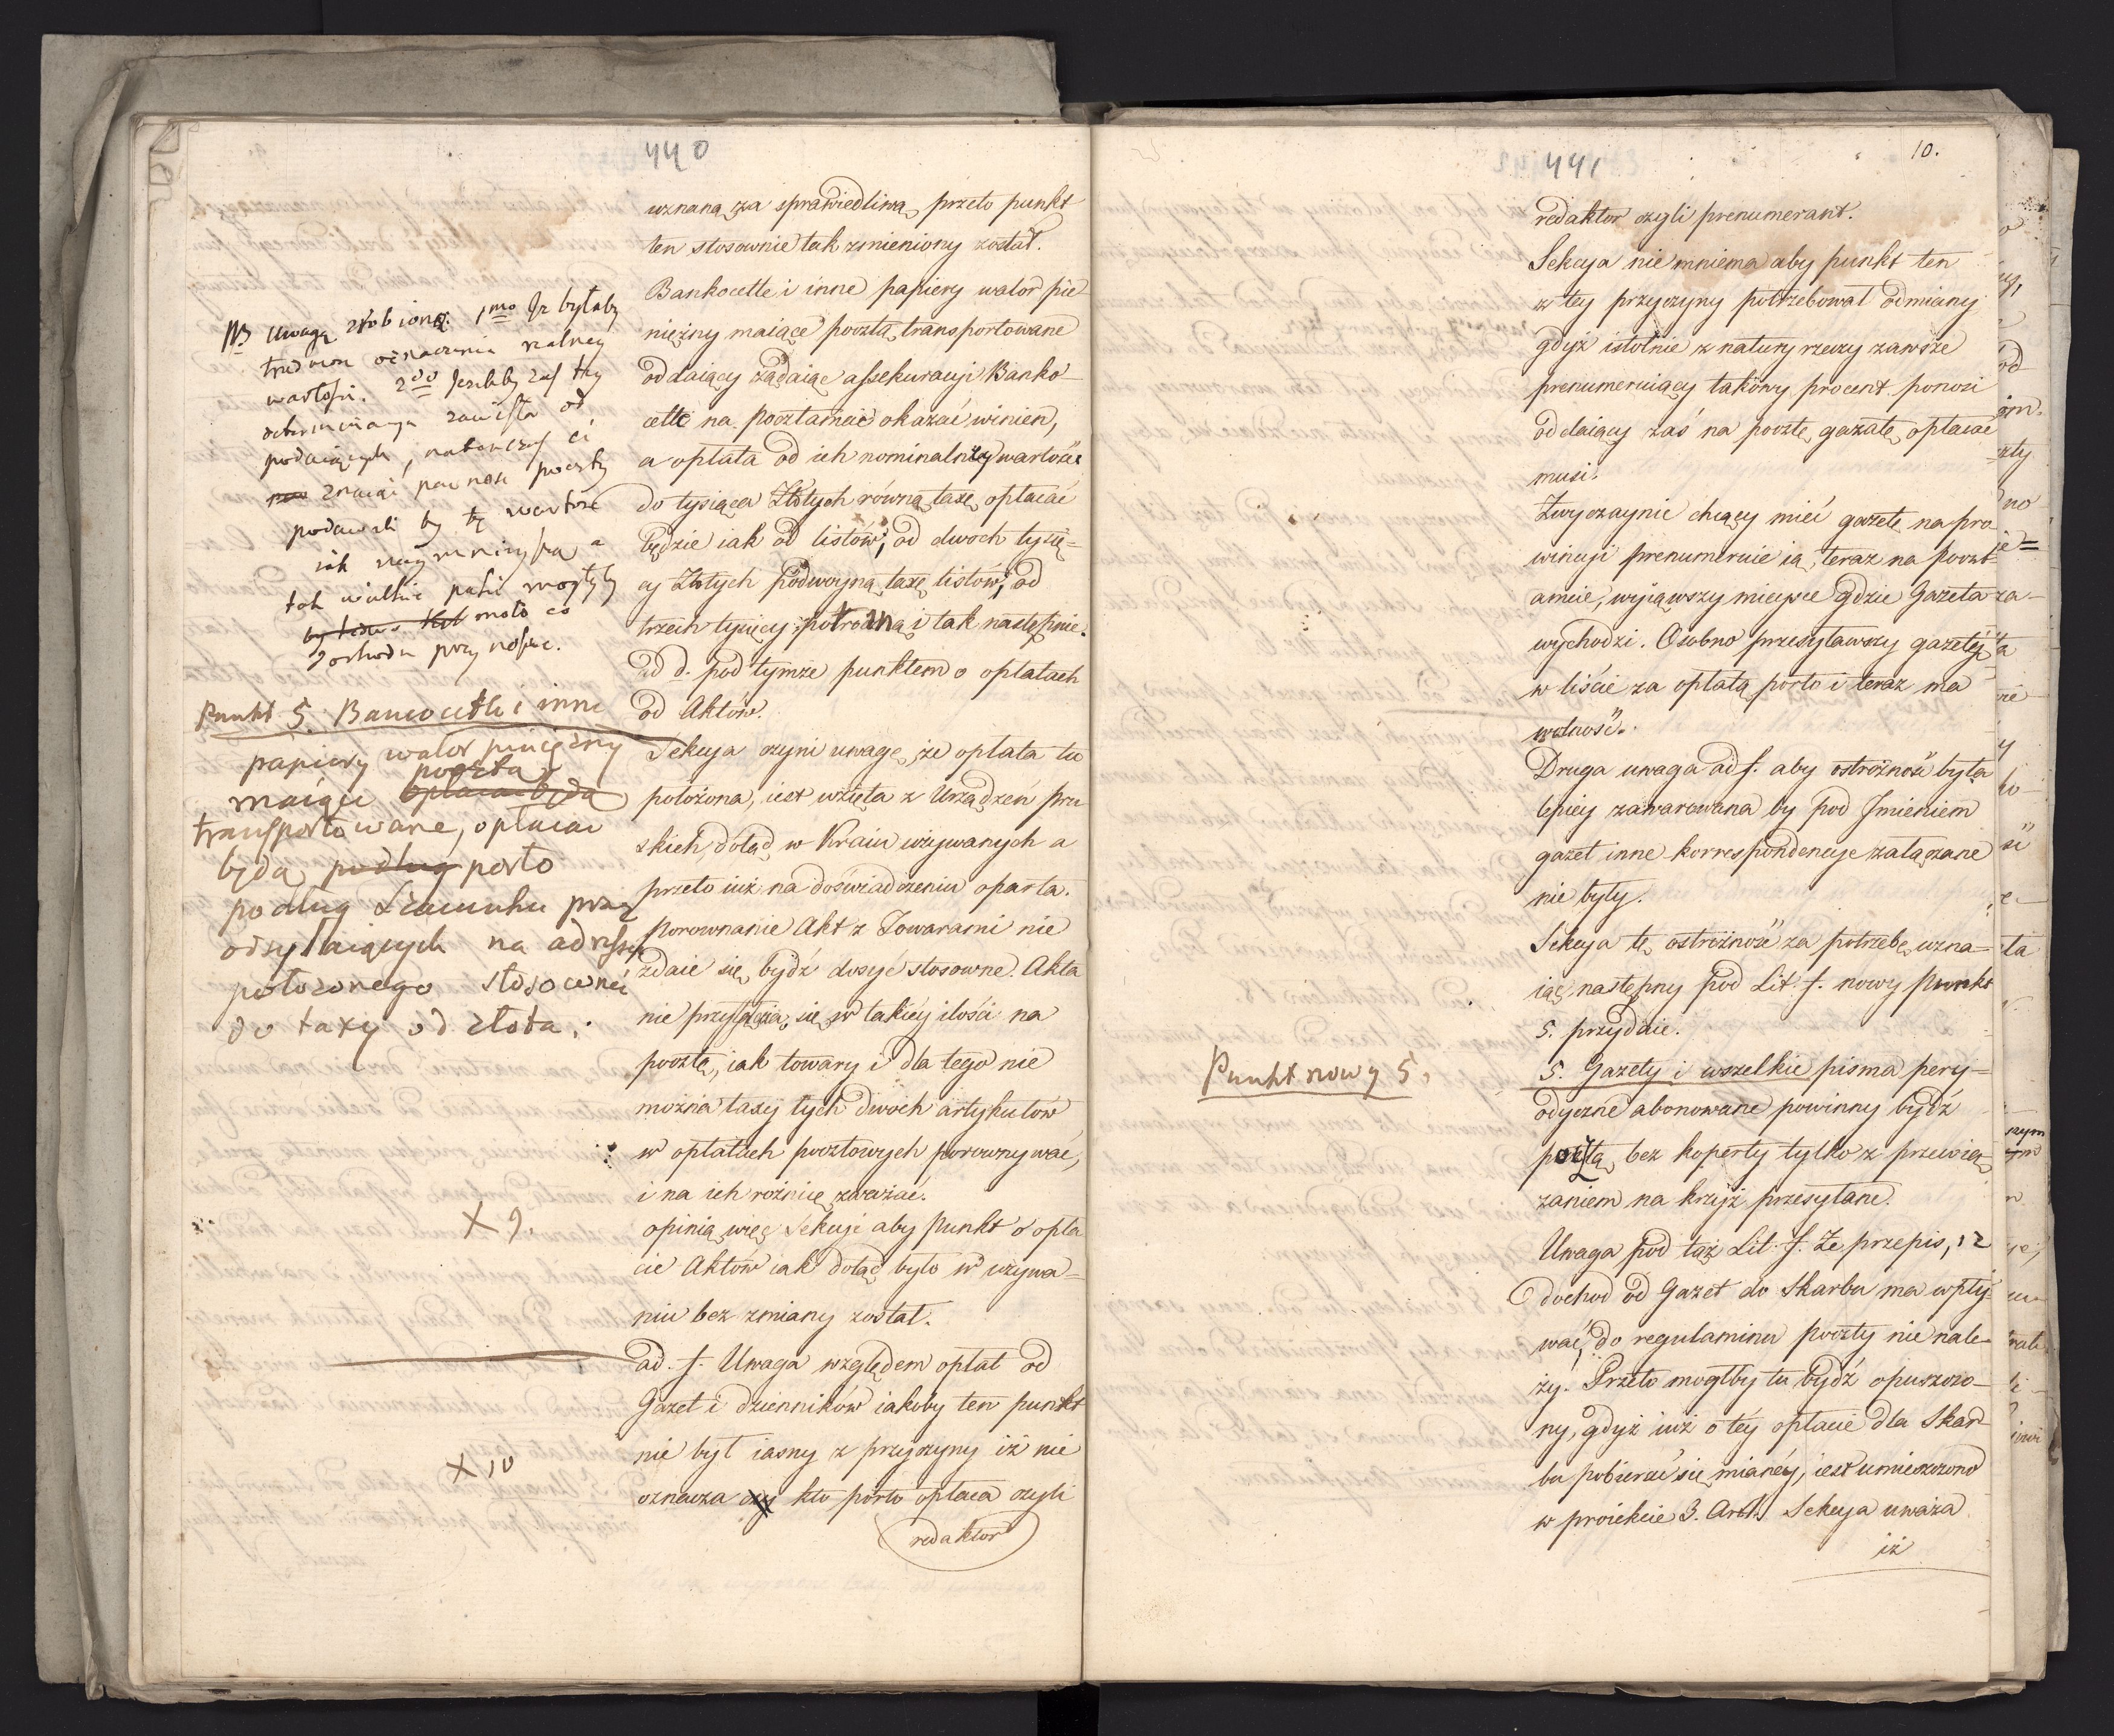 440
uznaną za sprawiedliwą, przeto punkt
ten stosownie tak zmieniony został.
Bankocetle i inne papiery walor pie-
niężny maiące pocztą transportowane
oddaiący żądaiąc assekuracyi Banko-
cetle na pocztamcie okazać winien,
a opłata od ich nominalney wartości
do tysiąca Złotych równą taxę opłacać
będzie iak od listów; od dwoch tysię-
cy Złotych podwoyną taxę listów; od
trzech tysięcy potroyną i tak następnie.
ad d. pod tymże punktem o opłatach
od Aktów.
Sekcya czyni uwagę, że opłata tu
położona, iest wzięta z Urządzeń pru
skich dotąd w Kraiu używanych a
przeto iuż na doświadczeniu oparta.
Porownanie Akt z Towarami nie
zdaie się bydź dosyć stosowne. Akta
nie się w takiéy ilości na
pocztę, iak towary i dla tego nie
można taxy tych dwóch artykułów
w opłatach pocztowych porownywać,
i na ich rożnicę zważać.
opinią więc Sekcyi aby Punkt o opła
cie Aktów iak dotąd było w używa-
niu bez zmiany został.
ad. f. Uwaga względem opłat od
Gazet i dzienników iakoby ten punkt
nie był iasny z przyczyny iż nie
oznacza czy kto porto opłaca czyli
redaktor
NB Uwagą zrobioną: 1mo Iż byłaby
trudność oznaczenia realney
wartości. 2do Jeżeliby zaś tey
determinacya zawisła od
podaiących, natenczas ci
znaiąc pewność poczty
podawali by tę wartość
iak naymnieyszą a
tak wielkie paki mogłyby
mało co
dochodu przynosić.
Punkt 5. Bancocetle i inne
papiery walor pieniężny
maiące pocztą opłacać będą
transportowane, opłacać
będą podług porto
podług szacunku przez
odsyłaiących na adressie
położonego stosownie
do taxy od złota.
X 9.
X 10
441
10.
redaktor czyli prenumerant.
Sekcya nie mniema aby punkt ten
z tey przyczyny potrzebował odmiany
gdyż istotnie z natury rzeczy zawsze
prenumeruiący takowy procent ponosi
oddaiący zaś na pocztę gazetę opłacać
musi.
Zwyczaynie chcący mieć gazetę na pro-
wincyi prenumeruie ią teraz na poczt-
amcie, wyiąwszy mieysce gdzie Gazeta
wychodzi. Osobno przesyławszy gazetę
w liście za opłatą porto i teraz ma
wolność.
Druga uwaga ad f. aby ostróżność była
lepiey zawarowana by pod Jmieniem
gazet inne korrespondencye załączane
nie były.
Sekcya tę ostróżność za potrzebę uzna-
iąc następny pod Lit. f. nowy Punkt
5. przydaie.
5. Gazety i wszelkie pisma pery-
odyczne abonowane powinny bydź
pocztą bez koperty tylko z przewią-
zaniem na krzyż przesyłane.
Uwaga pod taż Lit. f. Że przepis, iż
dochod od Gazet do Skarbu ma wpły-
wać, do regulaminu poczty nie nale-
ży. Przeto mogłby tu bydź opuszczo-
ny, gdyż iuż o téy opłacie dla Skar-
bu pobierać się mianéy, iest umieszczono
w proiekcie 3. Art. Sekcya uważa
iż
Punkt nowy 5.